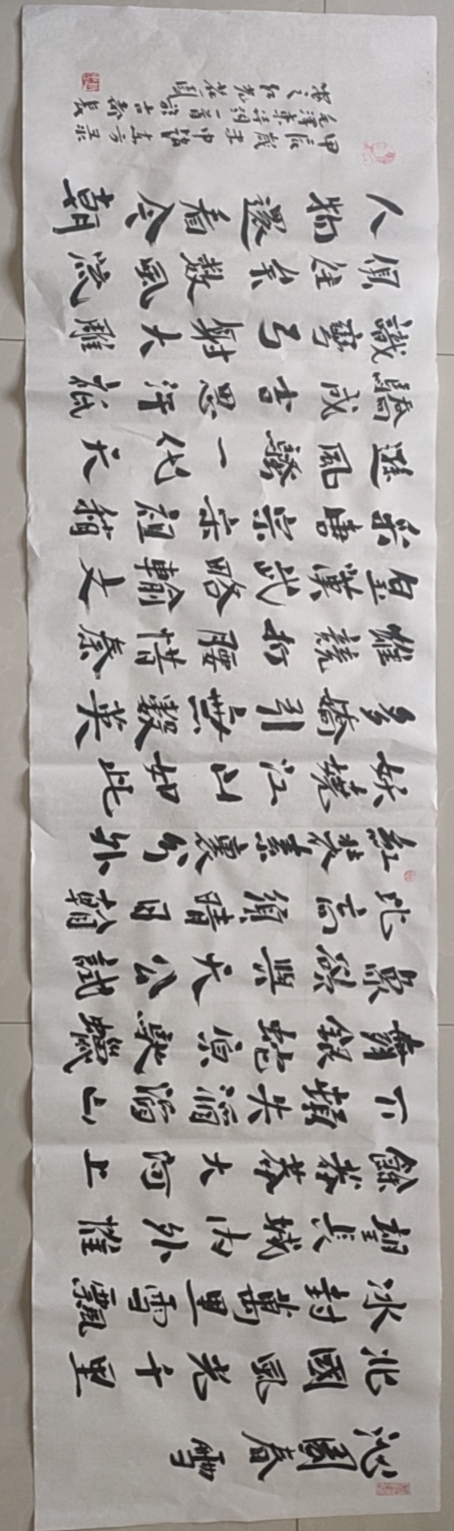 沁園春雪
北國風光千里
冰封萬里雪飄
望長城內外惟
餘莽莽大河上
下頓失滔滔山
舞銀蛇原馳蠟
象欲與天公試
比高須晴日看
紅裝素裹分外
妖嬈江山如此
多嬌引無數英
雄競折腰惜秦
皇漢武略輸文
采唐宗宋祖稍
遜風騷一代天
驕成吉思汗祇
識彎弓射大雕
俱往矣數風流
人物還看今朝
甲辰歲末
毛澤東